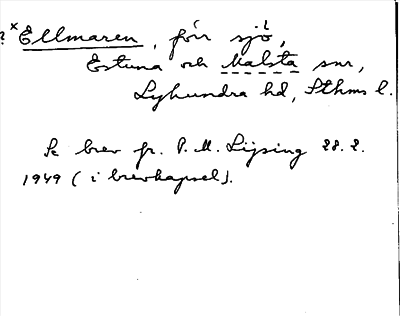 ?ˣEllmaren, förr sjö,
Estuna och Malsta snr,
Lyhundra hd, Sthms l.
Se brev fr. P. M. Lijsing 28. 2.
1949 (i brevkapsel).